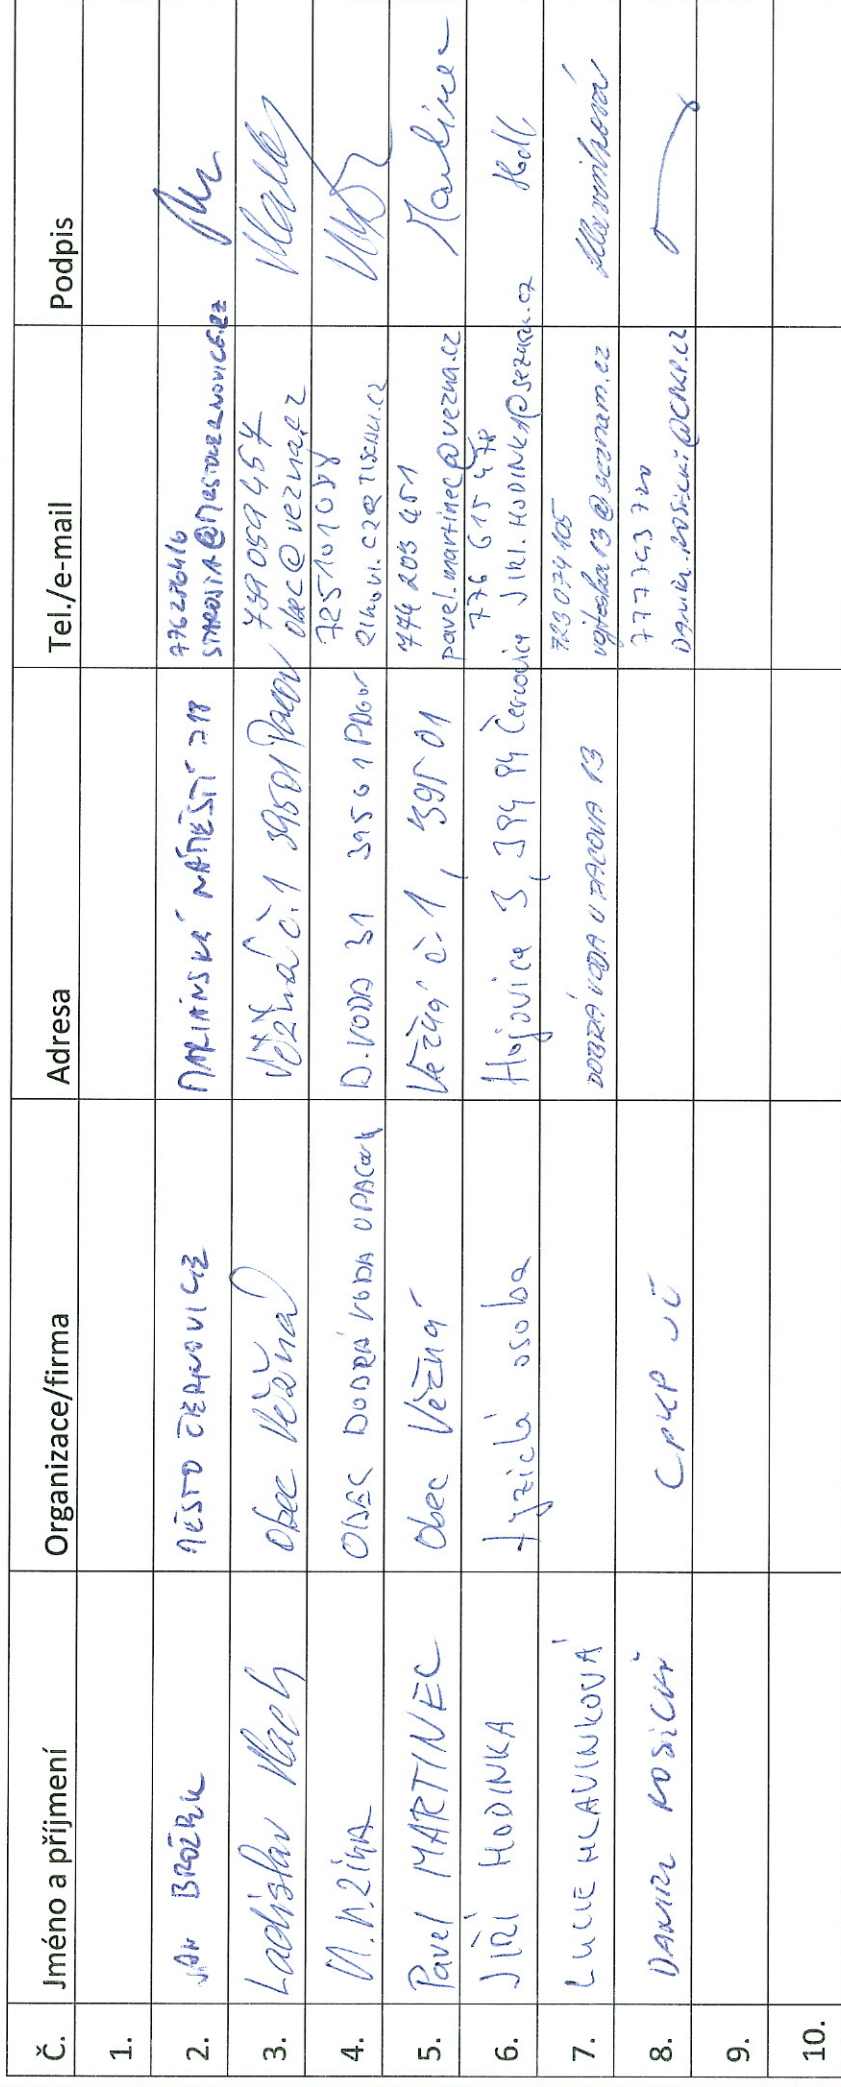 Č. Jméno a příjmení Organizace/firma Adresa Tel./e-mail Podpis
1.
2. JAN BROŽEK MĚSTO ČERNOVICE MARIÁNSKÉ NÁMĚSTÍ 718
3. Ladislav Vlach Obec Věžná Věžná č.1 39501 Pacov 739 059 457
obec@vezna.cz Vlach
4. OBEC DOBRÁ VODA U PACOVA D. VODA 31 39501 725101088
5. Pavel MARTINEC Obec Věžná Věžná č. 1, 395 01 774 203 451
pavel.martinec@vezna.cz Martinec
6. JIŘÍ HODINKA fyzická osoba Hojovice 3, 394 94 Černovice 776 615 478
JIRI.HODINKA@seznam.cz
7. LUCIE HLAVINKOVÁ DOBRÁ VODA U PACOVA 13 723 074 105
@seznam.cz Hlavinková
8. DANIEL KOSICKÝ CPKP
9.
10.